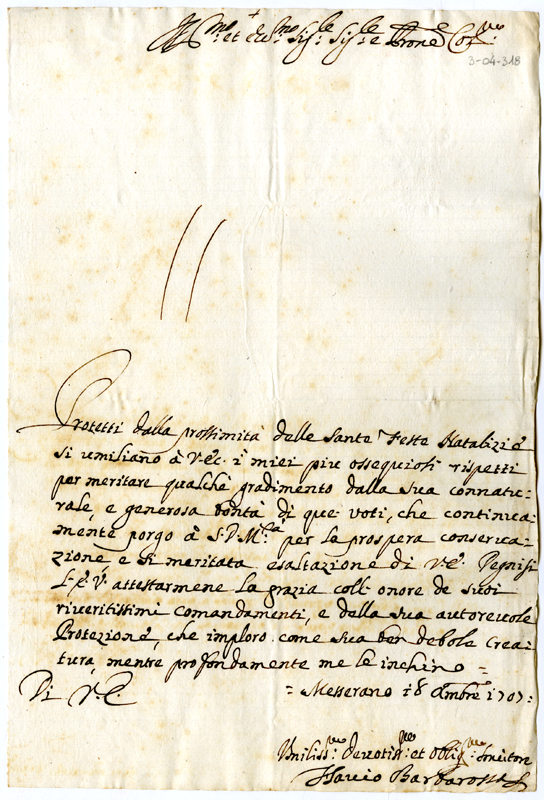 Ill:mo et Ecc:mo Sig:re Sig:re e Prone Col:mo
3-04-318
Protetti dalla prossimità delle Sante Feste Natalizie
si umiliano à V.E. i miei più ossequiosi rispetti
per meritare qualche gradimento dalla sua connatu-
rale, e generosa bontà di que voti, che continua-
mente porgo à S.D.M.tà per la prospera conserva-
zione e meritata esaltazione di V.E. Degnisi
L'E.V. attestarmene la grazia coll'onore de suoi
riveritissimi comandamenti, e della sua autorevole
Protezione, che imploro come sua ben debole crea-
tura, mentre profondamente me le inchino =
Di V.E. = Messerano 18 Xmbre 1707:
Umiliss:mo Devotiss:mo et Oblig:mo Servitore
Flavio Barbarossa